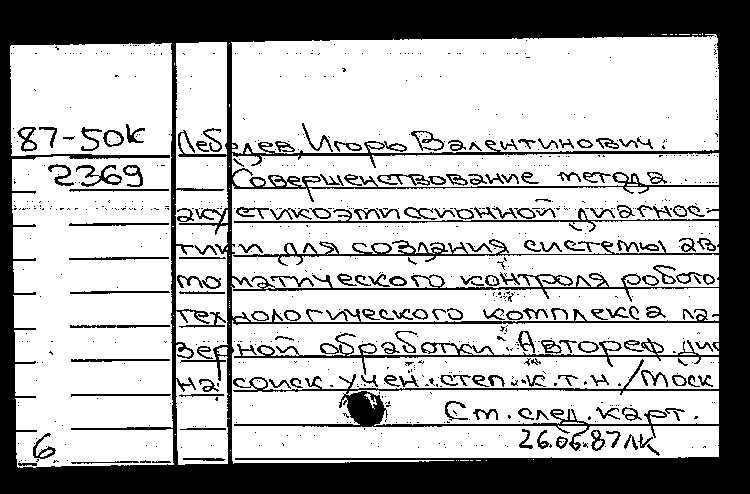 87-50к Лебедев, Игорь Валентинович.
2369 Совершенствование метода
акустикоэмиссионной диагнос-
тики для создания системы ав-
томатического контроля робото-
технологического комплекса ла-
зерной обработки: Автореф. дис
на соиск. учен. степ. к.т.н. / Моск
См. след. карт.
6 26.06.87ЛК